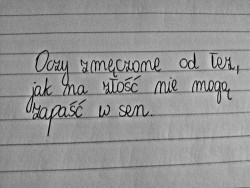 Oczy zmęczone od łez,
jak na złość nie mogą
zapaść w sen.